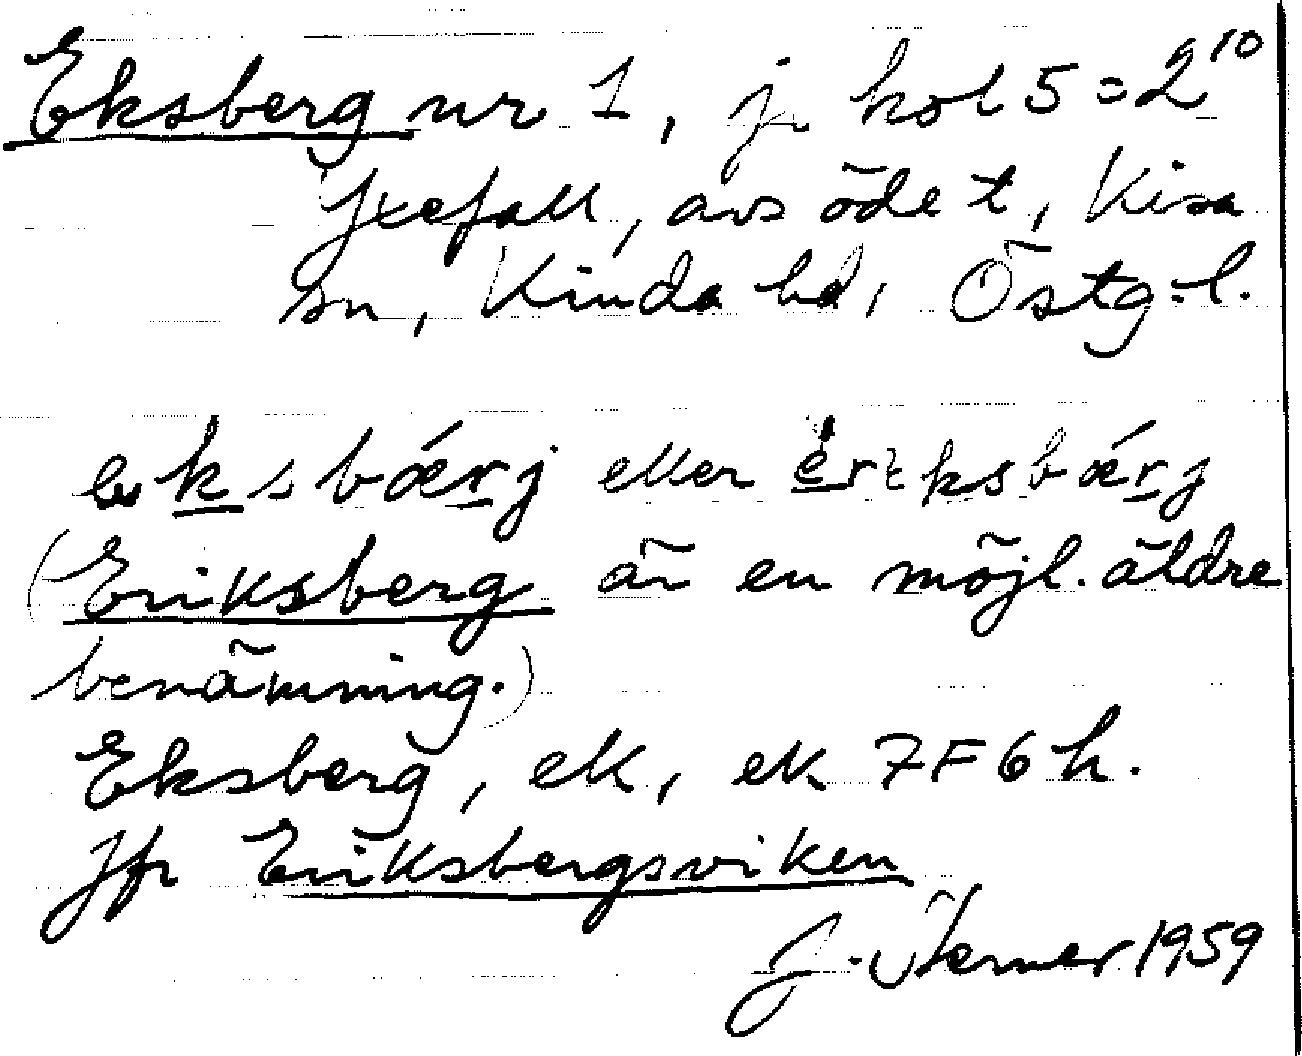 Eksberg nr 1, j kol 5 = 2¹⁰
Yxefall, avs ödet, Kisa
sn, Kinda hd, Östg-l.
eksbǽrj eller èrɩksbǽrj
(Eriksberg är en möjl. äldre
benämning.)
Eksberg, ek, ek 7F6h.
Jfr Eriksbergsviken
J. 1959